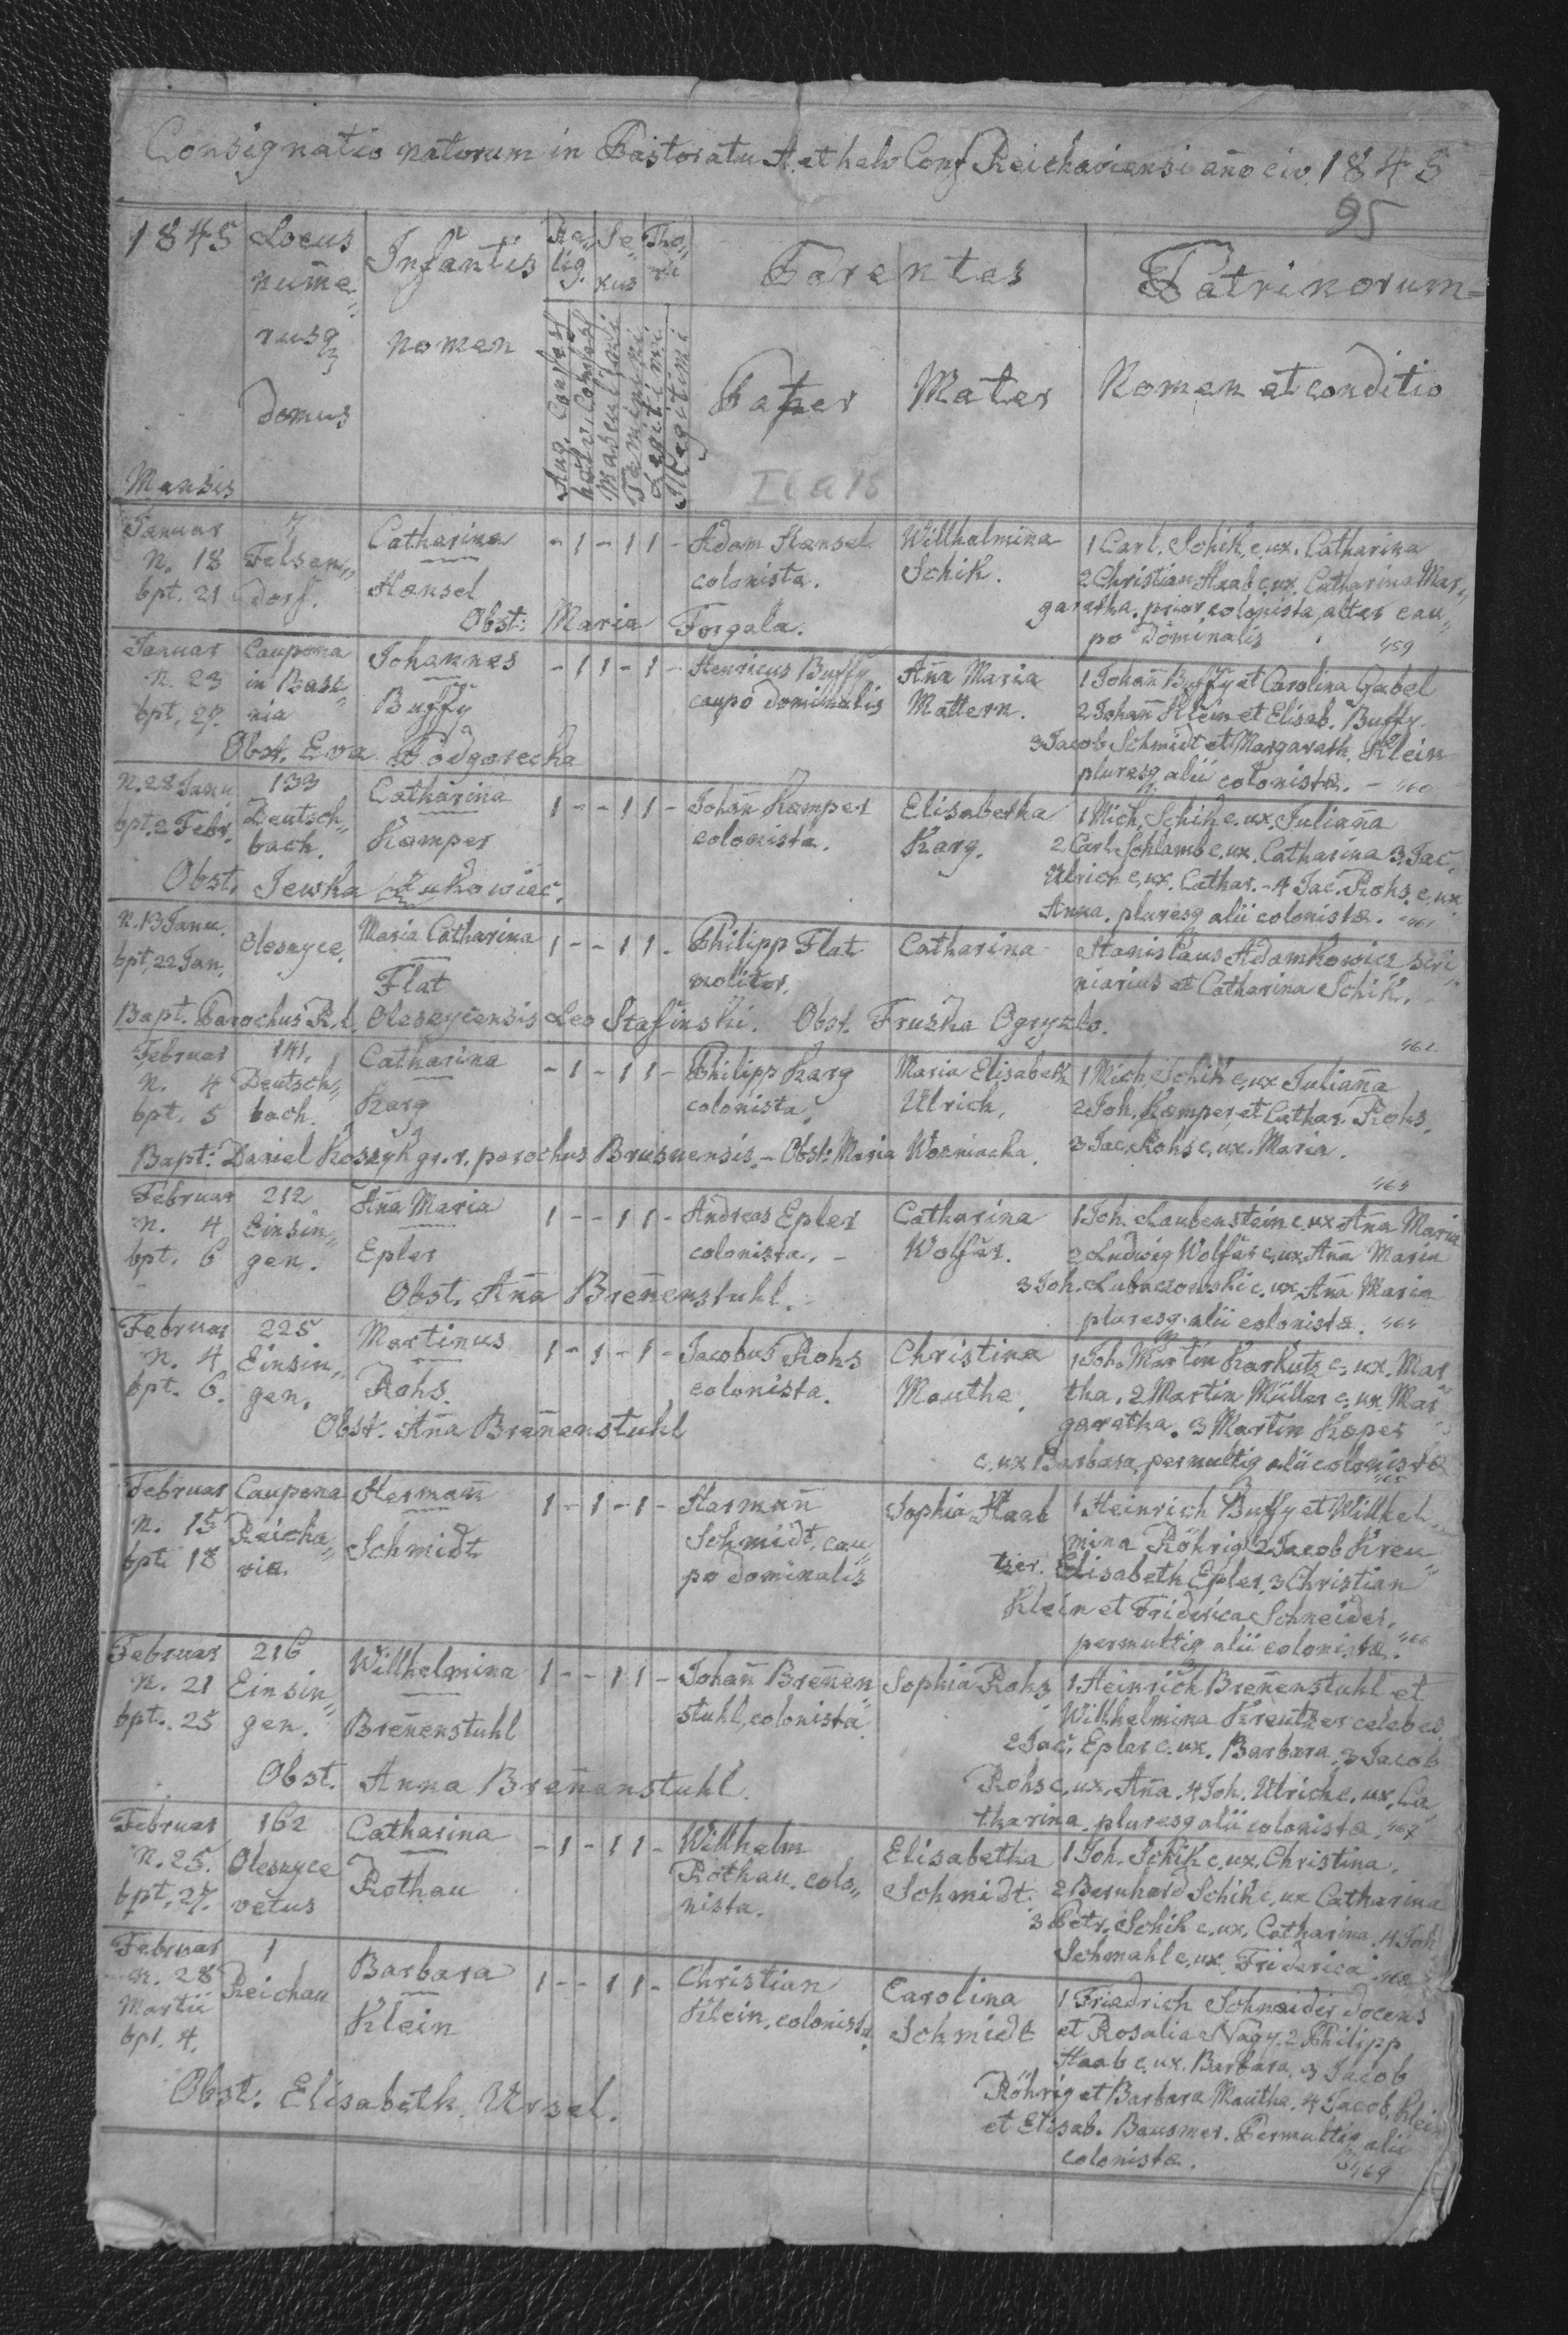 Consignatio natorum in Pastoratu A. et helv Conf Reichaviensi año civ. 1845
95
1845 Locus Infantis Re„ Se„ Tho„ Parentes Patrinorum=
num̄e„ lig. xus ri
rusq nomen Pater Mater Nomen et conditio
domus
Aug. Confess
helv. Confess
Masculini
Feminini
Legitimi
Illegitimi
Mensis
Januar 7 Catharina - 1 - 1 1 - Adam Hænsel Willhelmina 1 Carl. Schik c. ux. Catharina
N. 18 Felsen„ Hænsel colonista. Schik. 2 Christian Haab c. ux. Catharina Mar„
bpt. 21 dorf. garetha. prior colonista, alter cau„
Obst: Maria Forgala. po dominalis 459
Januar Caupona Johannes - 1 1 - 1 - Henricus Buffy Ana Maria 1 Johan̄ Buffy et Carolina Gabel
N. 23 in Basz„ Buffy caupo dominalis Mattern. 2 Johan̄ Klein et Elisab. Buffy.
bpt. 27. nia 3 Jacob Schmidt et Margareth. Klein
Obst. Eva Podgorecka pluresq alii colonistæ. - 460
N. 28 Janu 133 Catharina 1 - - 1 1 - Johan̄ Kemper Elisabetha 1 Mich. Schik c. ux. Julian̄a
bpt. 2 Febr. Deutsch„ Kemper colonista. Karg. 2 Carl. Schlamb c. ux. Catharina 3. Jac.
bach. Ulrich c. ux. Cathar. - 4 Jac. Rohs. c. ux
Obst. Jewka Żukowiec. Anna. pluresq alii colonistæ. - 461
N. 13 Janu. Oleszyce. Maria Catharina 1 - - 1 1 - Philipp Flat Catharina Stanislaus Adamkowicz scri„
bpt. 22 Jan. Flat molitor. niarius et Catharina Schik.
Bapt. Parochus R. l. Oleszycensis Leo Stafinski. Obst. Fruska Ogryzlo. 462
Februar 141. Catharina - 1 - 1 1 - Philipp Karg Maria Elisabeth 1 Mich. Schik c. ux Julian̄a
N. 4 Deutsch„ Karg colonista. Ulrich. 2 Joh. Kemper et Cathar. Rohs.
bpt. 5 bach. 3 Jac. Rohs c. ux. Maria.
Bapt: Daniel Koszyk gr. r. parochus Brusnensis. - Obst: Maria Wozniacka. 463
Februar 212 An̄a Maria 1 - - 1 1 - Andreas Epler Catharina 1 Joh. Laubenstein c. ux An̄a Maria
N. 4 Einsin„ Epler colonista. - Wolfer. 2 Ludwig Wolfer c. ux An̄a Maria
bpt. 6 gen. 3 Joh. Lubaczowski c. ux. An̄a Maria
Obst. An̄a Bren̄enstuhl. pluresq. alii colonistæ. 464
Februar 225 Martinus 1 - 1 - 1 - Jacobus Rohs Christina 1 Joh. Martin Karkutz c. ux. Mar
N. 4 Einsin„ Rohs. colonista. Mauthe. tha. 2 Martin Müller c. ux Mar„
bpt. 6. gen. garetha. 3 Martin Kæper
Obst: An̄a Bren̄enstuhl c. ux Barbara, permultiq alii colonistæ
465
Februar Caupona Herman̄ 1 - 1 - 1 - Herman̄ Sophia Haab 1 Heinrich Buffy et Willhel„
N. 15 Reicha„ Schmidt Schmidt, cau„ mina Röhrig 2 Jacob Kreu„
bpt. 18 via. po dominalis tzer. Elisabeth Epler. 3 Christian
Klein et Friderica Schneider.
permultiq alii colonistæ. 466
Februar 216 Willhelmina 1 - - 1 1 - Johan̄ Bren̄en„ Sophia Rohs 1 Heinrich Bren̄enstuhl et
N. 21 Einsin„ Bren̄enstuhl stuhl, colonista. Willhelmina Kreutzer celebes.
bpt. 25 gen. 2 Jac. Epler c. ux. Barbara. 3 Jacob
Obst. Anna Bren̄enstuhl. Rohs c. ux. An̄a. 4 Joh. Ulrich c. ux. Ca„
tharina. pluresq alii colonistæ. 467
Februar 162 Catharina - 1 - 1 1 - Willhelm Elisabetha 1 Joh. Schik c. ux. Christina.
N. 25. Oleszyce Rothau Rothau. colo„ Schmidt. 2 Bernhard Schik c. ux Catharina
bpt. 27. vetus nista. 3 Petr. Schik c. ux. Catharina. 4 Joh
Schmahl c. ux. Friderica 468
Februar 1 Barbara 1 - - 1 1 - Christian Carolina 1 Friedrich Schneider docens
N. 28 Reichau Klein Klein, colonista. Schmidt et Rosalia Nagy. 2 Philipp
Martii Haab c. ux. Barbara. 3 Jacob
bpt. 4. Röhrig et Barbara Mauthe. 4 Jacob. Klein
Obst: Elisabeth. Ursel. et Elisab. Bausmer. Permultiq alii
colonistæ. 469